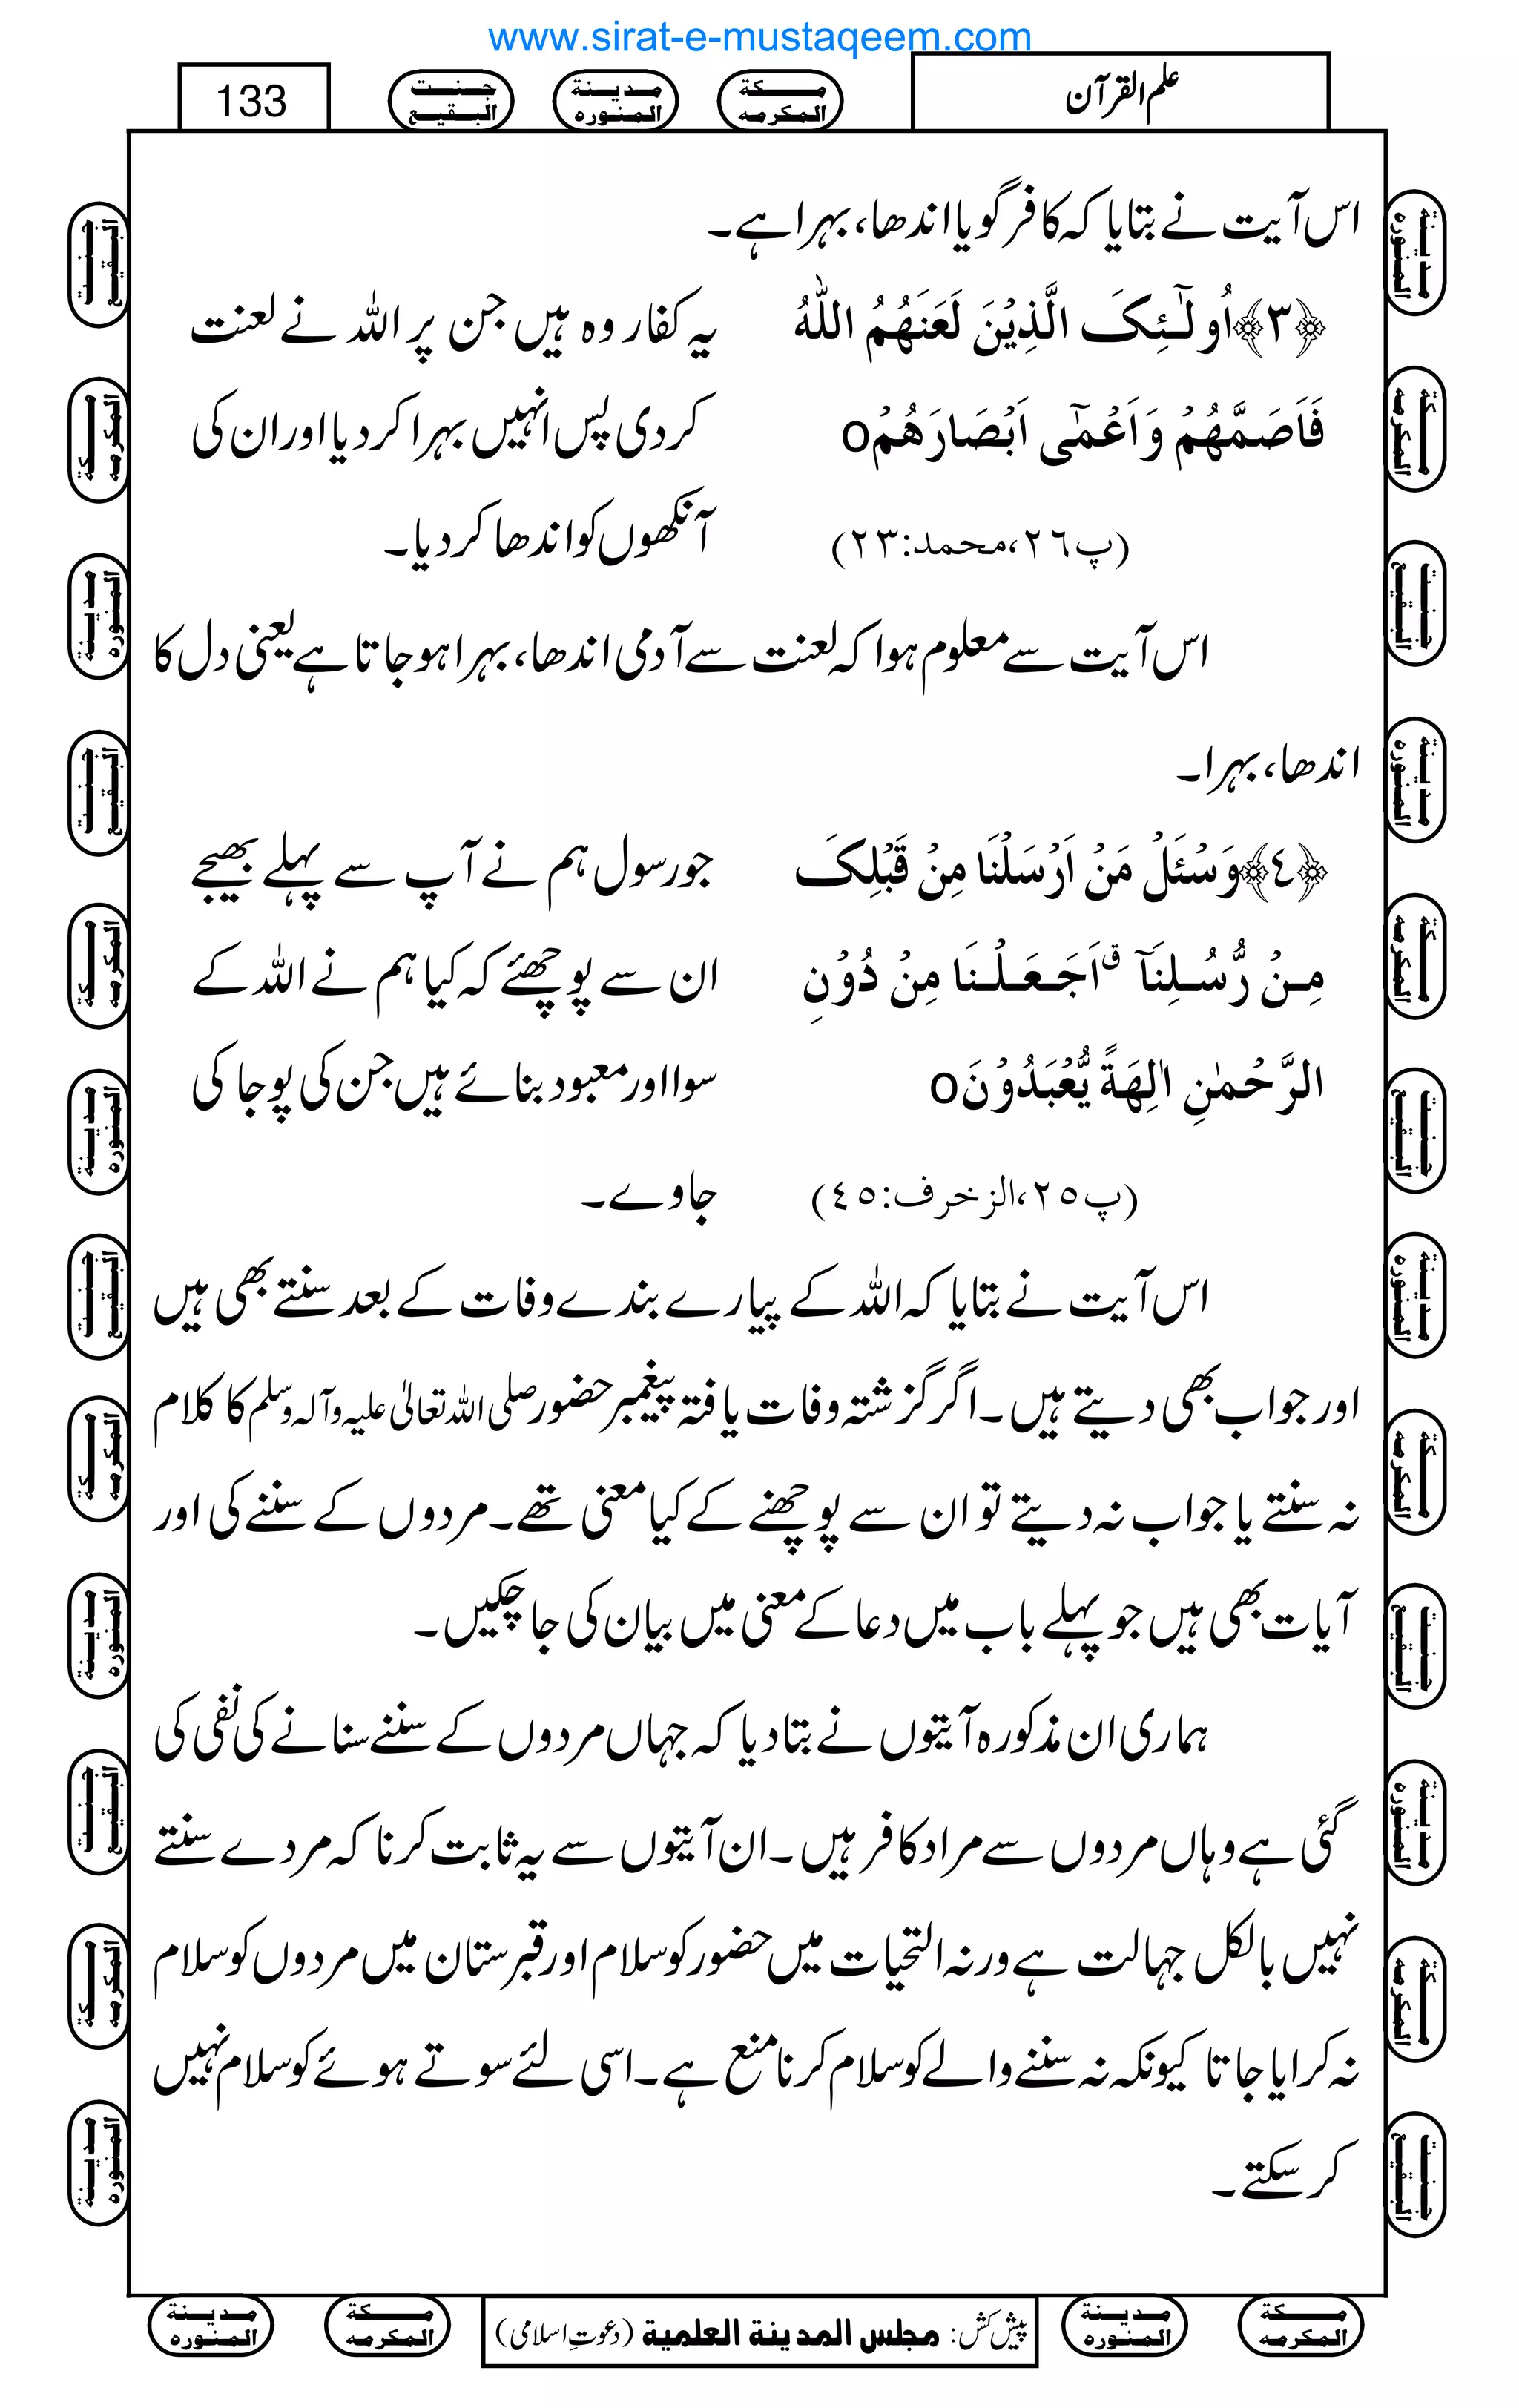 www.sirat-e-mustaqeem.com
علم القرآن
مكة المكرمه
مدينة المنوره
جنت البقيع
133
اس آیت نے بتایا کہ کافر گویا اندھا، بہرا ہے۔
﴿٣﴾اُولٰٓئِکَ الَّذِیْنَ لَعَنَہُمُ اللہُ
فَاَصَمَّہُمْ وَ اَعْمٰٓی اَبْصَارَہُمْo
(پ٢٦،محمد:٢٣)
یہ کفار وہ ہیں جن پر اللہ نے لعنت
کردی پس انہیں بہرا کردیا اور ان کی
آنکھوں کو اندھا کردیا۔
اس آیت سے معلوم ہوا کہ لعنت سے آدمی اندھا، بہرا ہوجاتا ہے یعنی دل کا
اندھا، بہرا۔
﴿٤﴾وَسْـَٔلْ مَنْ اَرْسَلْنَا مِنْ قَبْلِکَ
مِنْ رُّسُلِنَاۤ ٭ اَجَعَلْنَا مِنْ دُوْنِ
الرَّحْمٰنِ اٰلِہَۃً یُّعْبَدُوْنَo
(پ٢٥،الزخرف:٤٥)
جو رسول ہم نے آپ سے پہلے بھیجے
ان سے پوچھئے کہ کیا ہم نے اللہ کے
سوا اور معبود بنائے ہیں جن کی پوجا کی
جاوے۔
اس آیت نے بتایا کہ اللہ کے پیارے بندے وفات کے بعد سنتے بھی ہیں
اور جواب بھی دیتے ہیں۔ اگر گزشتہ وفات یافتہ پیغمبر حضور صلی اللہ تعالیٰ علیہ وآلہ وسلم کا کلام
نہ سنتے یا جواب نہ دیتے تو ان سے پوچھنے کے کیا معنی تھے۔ مردوں کے سننے کی اور
آیات بھی ہیں جو پہلے باب میں دعا کے معنی میں بیان کی جاچکیں۔
ہماری ان مذکورہ آیتوں نے بتادیا کہ جہاں مردوں کے سننے سنانے کی نفی کی
گئی ہے وہاں مردوں سے مراد کافر ہیں۔ ان آیتوں سے یہ ثابت کرنا کہ مردے سنتے
نہیں بالکل جہالت ہے ورنہ التحیات میں حضور کو سلام اور قبرستان میں مردوں کو سلام
نہ کرایا جاتا کیونکہ نہ سننے والے کو سلام کرنا منع ہے۔ اسی لئے سوتے ہوئے کو سلام نہیں
کرسکتے۔
پیش کش: مجلس المدينة العلمية (دعوتِ اسلامی)